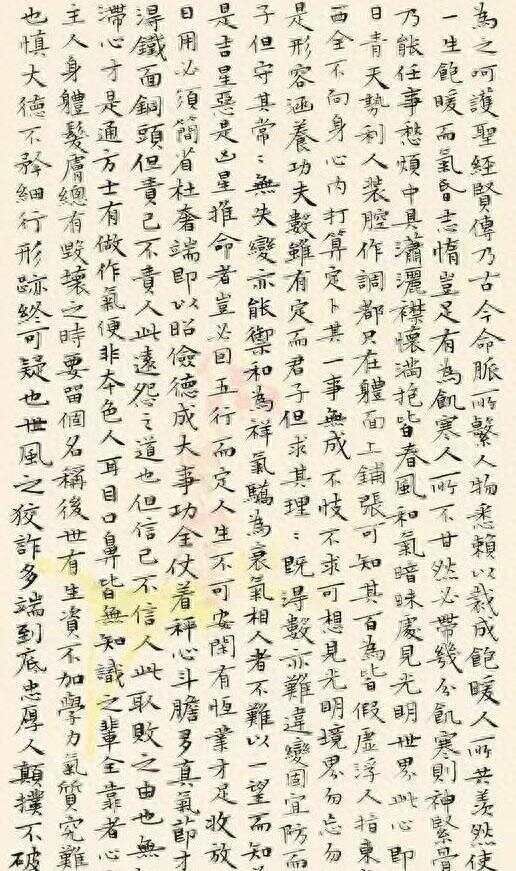 為之呵護聖經賢傳乃古今命脈所繫人物悉賴以裁成飽暖人所共羨然使
一生飽暖而氣昏志惰豈足有為飢寒人所不甘然必帶幾分飢寒則神緊骨
乃能任事愁煩中具瀟灑襟懷滿抱皆春風和氣暗昧處見光明世界此心即
日青天勢利人装腔作調都只在體面上鋪張可知其百為皆假虛浮人指東
西全不向身心內打算定卜其一事無成不忮不求可想見光明境界勿忘勿
是形容涵養功夫數雖有定而君子但求其理：既得數亦難違變固宜防而
子但守其常：無失變亦能禦和為祥氣驕為衰氣相人者不難以一望而知
是吉星惡是凶星推命者豈必因五行而定人生不可安閒有恆業才足收放
日用必須簡省杜奢端即以昭儉德成大事功全仗着秤心斗膽多真氣節才
得鐵面銅頭但責己不責人此遠怨之道也但信己不信人此取敗之由也無
滯心才是通方士有做作氣便非本色人耳目口鼻皆無知識之輩全靠者心
主人身體髮膚總有毀壞之時要留個名稱後世有生資不加學力氣質究難
也慎大德不矜細行形跡終可疑也世風之狡詐多端到底忠厚人顛撲不破